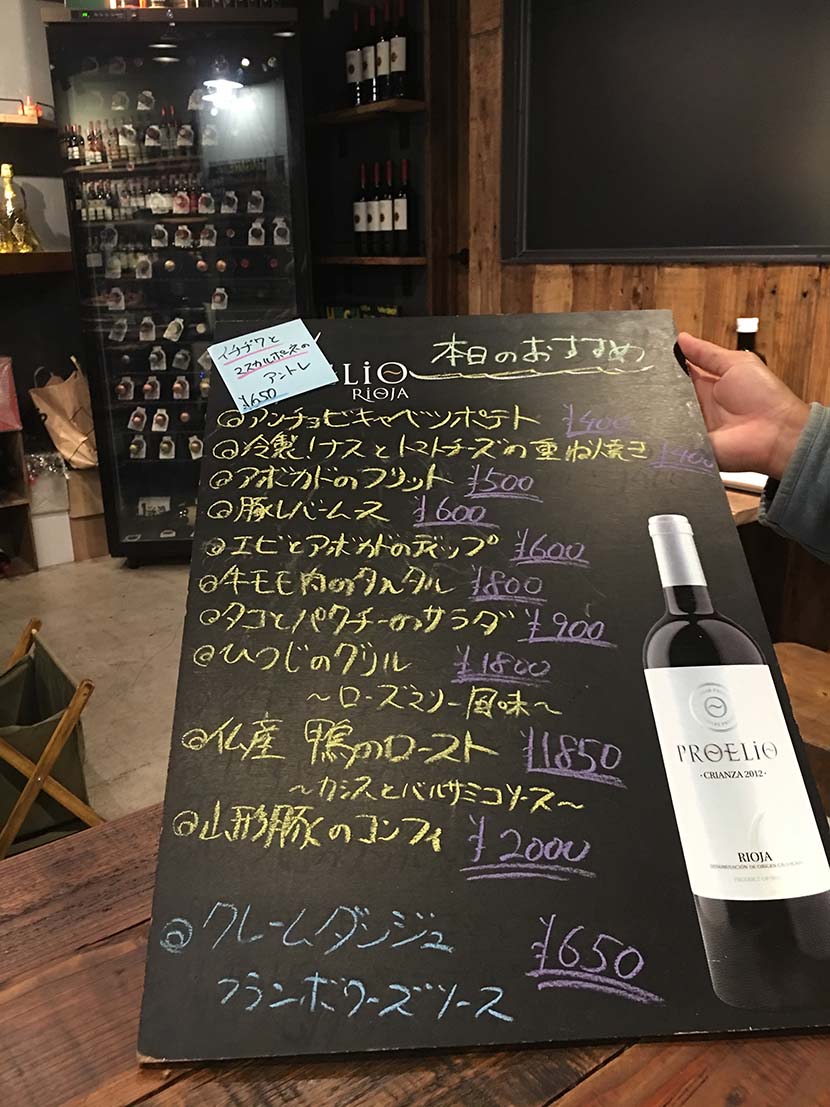 イチヂクと
マスカルポーネの
アントレ
¥650
LiO
RiOJA
本日のおすすめ
◎アンチョビキャベツポテト ¥400
◎冷製!ナスとトマトチーズの重ね焼き ¥400
◎アボカドのフリット ¥500
◎豚レバームース ¥600
◎エビとアボカドのディップ ¥600
◎牛モモ肉のタルタル ¥800
◎タコとパクチーのサラダ ¥900
◎ひつじのグリル ¥1800
〜ローズマリー風味〜
◎仏産 鴨のロースト ¥1850
〜カシスとバルサミコソース〜
◎山形豚のコンフィ ¥2000
◎クレームダンジュ ¥650
フランボワーズソース
PROELiO
·CRIANZA 2012·
RIOJA